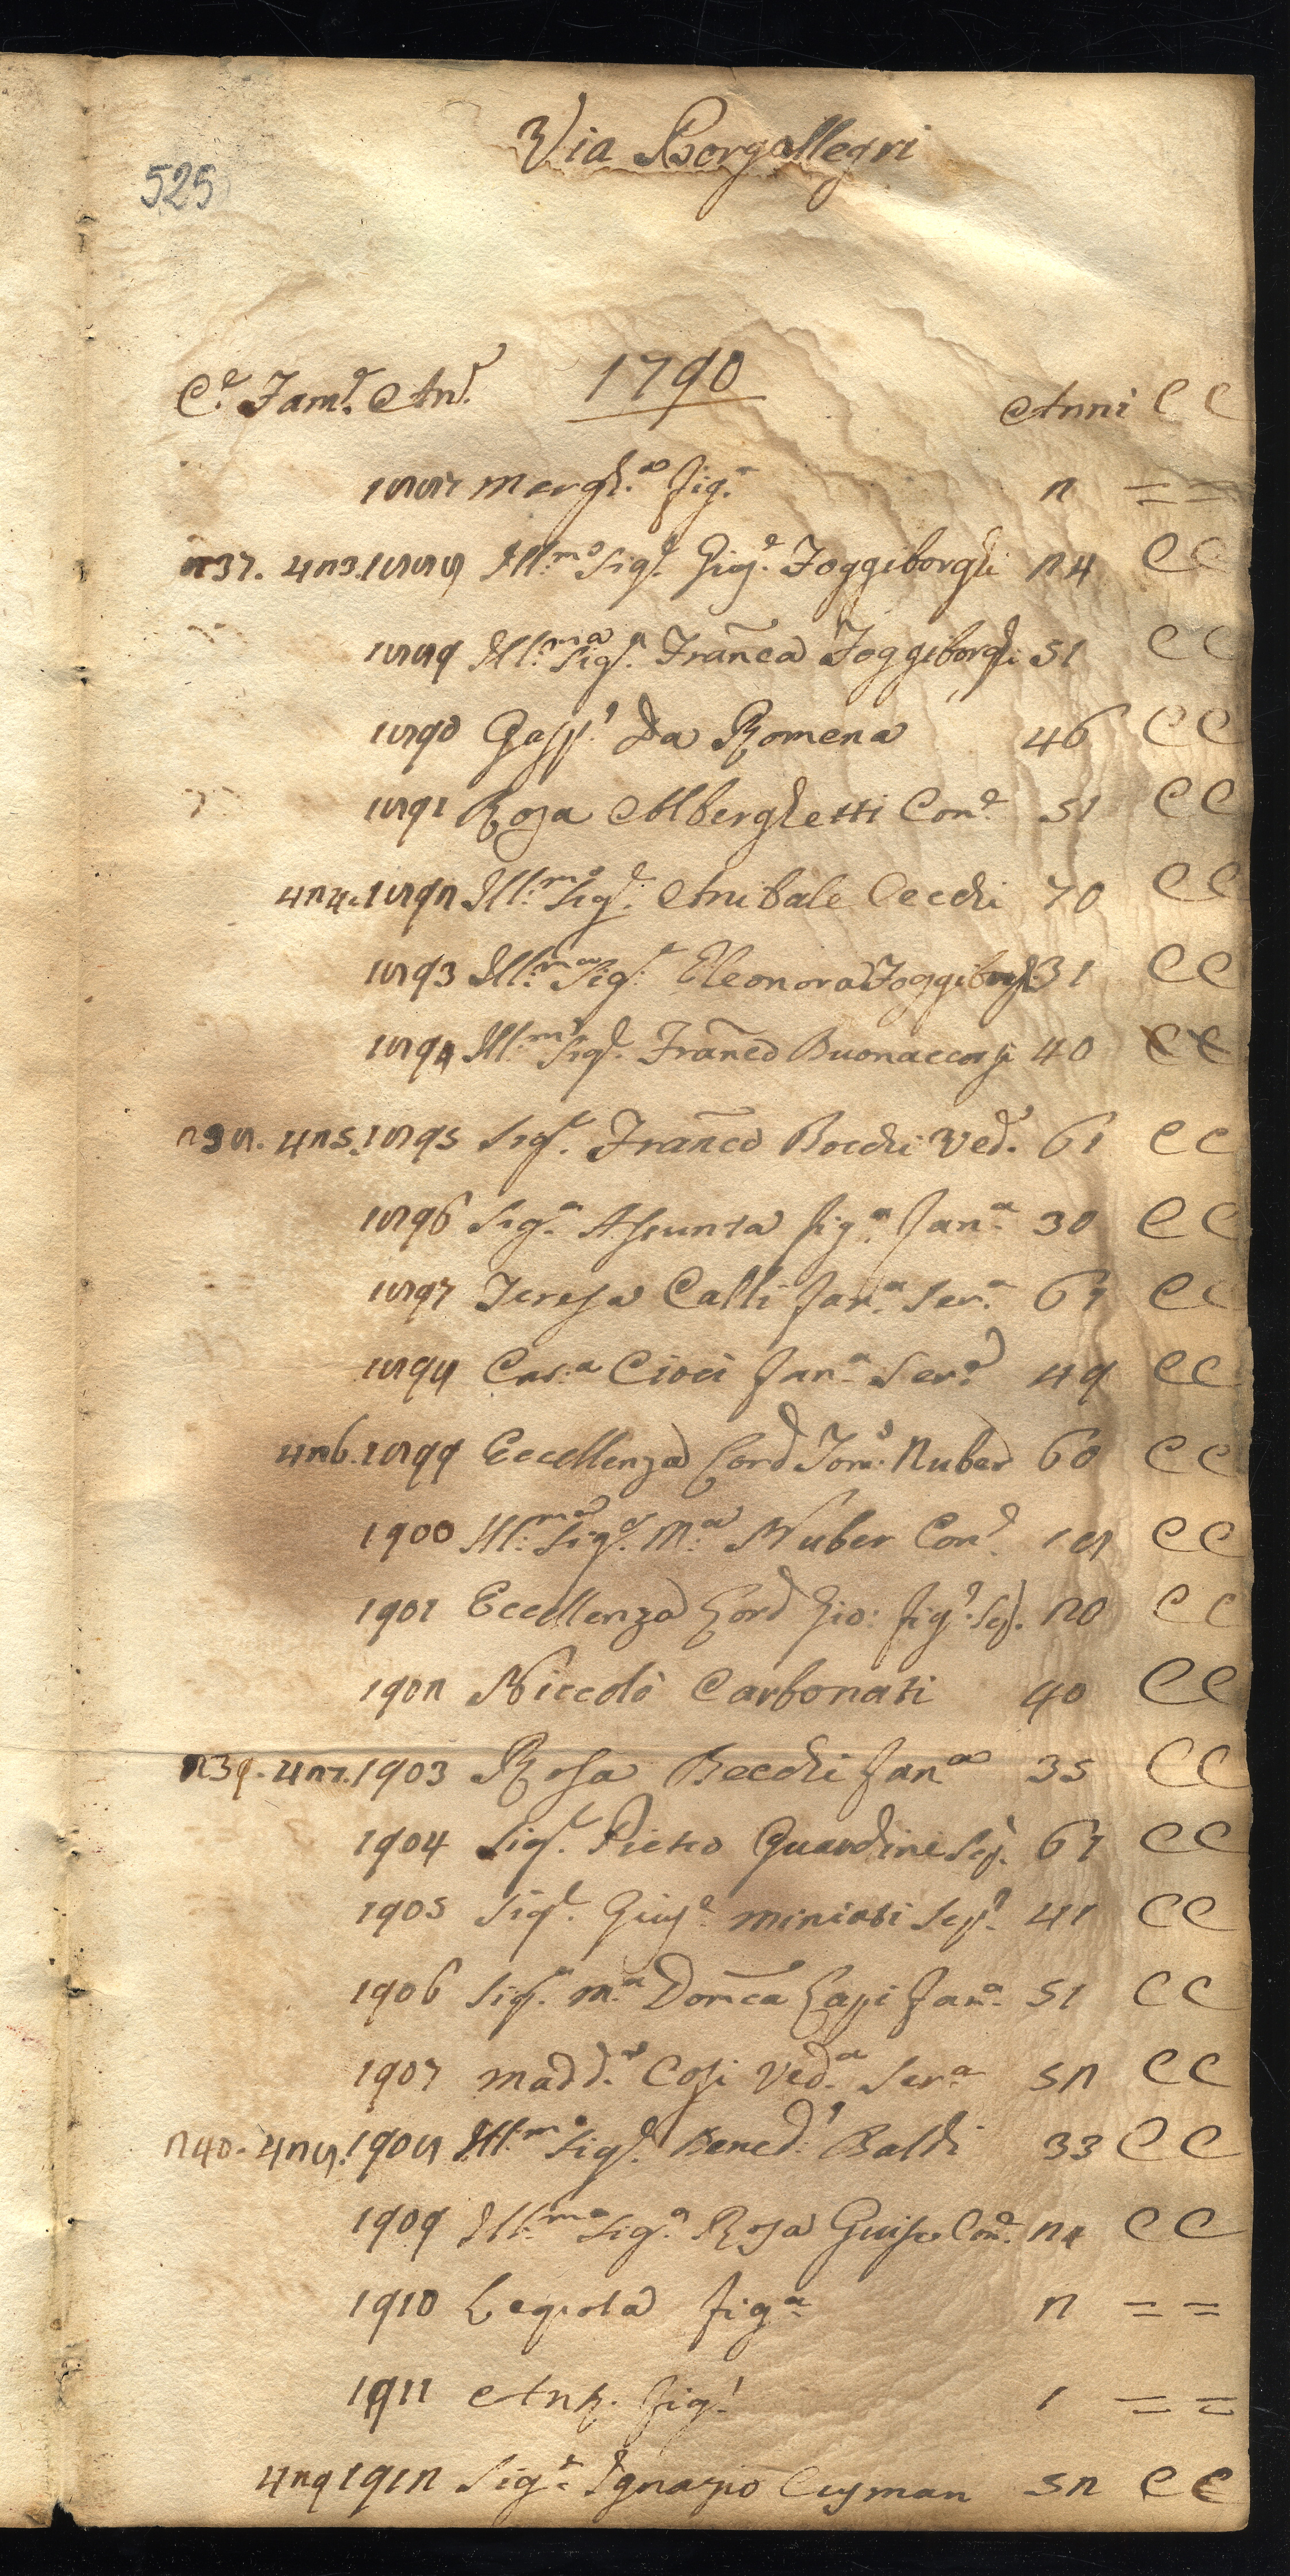 Via Borgallegri
525
C.e Fam.e An.e 1790 Anni C C
1887 Margh.a fig.a 2 = =
237. 423. 1888 Ill.mo Sig.e Giuſ.e Foggiborghi 24 C C
1889 Ill.ma Sig.a Franca Foggiborghi 51 C C
1890 Gaſp.e Da Romena 46 C C
1891 Rosa Alberghetti Con.e 51 C C
424. 1892 Ill.mo Sig.e Anibale Cecchi 70 C C
1893 Ill.ma Sig.a Eleonora Foggiborghi 31 C C
1894 Ill.mo Sig.e Franco Buonaccorsi 40 C C
238. 425. 1895 Sig.e Franco Bocchi Ved.o 61 C C
1896 Sig.a Aſsunta fig.a fan.a 30 C C
1897 Tereſa Calli fan.a Ser.a 67 C C
1898 Cat.a Cioci fan.a Ser.a 49 C C
426. 1899 Eccellenza Lord Tom.o Nuber 60 C C
1900 Ill.ma Sig.a M.a Nuber Con.e 18 C C
1901 Eccellenza Lord Gio: fig.o Sc. 20 C C
1902 Niccolò Carbonati 40 C C
239. 427. 1903 Roſa Becchi fan.a 35 C C
1904 Sig.e Pietro Guardini Sc. 67 C C
1905 Sig.e Giuſ.e Miniati Sc. 41 C C
1906 Sig.a M.a Domca Lapi fan.a 51 C C
1907 Madd.a Coſi Ved.a Ser.a 52 C C
240. 428. 1908 Ill.mo Sig.e Bened.o Baldi 33 C C
1909 Ill.ma Sig.a Rosa Con.e 24 C C
1910 fig.a 2 = =
1911 Ant. fig.o 1 = =
429 1912 Sig.e Ignazio Cuſman 52 C C